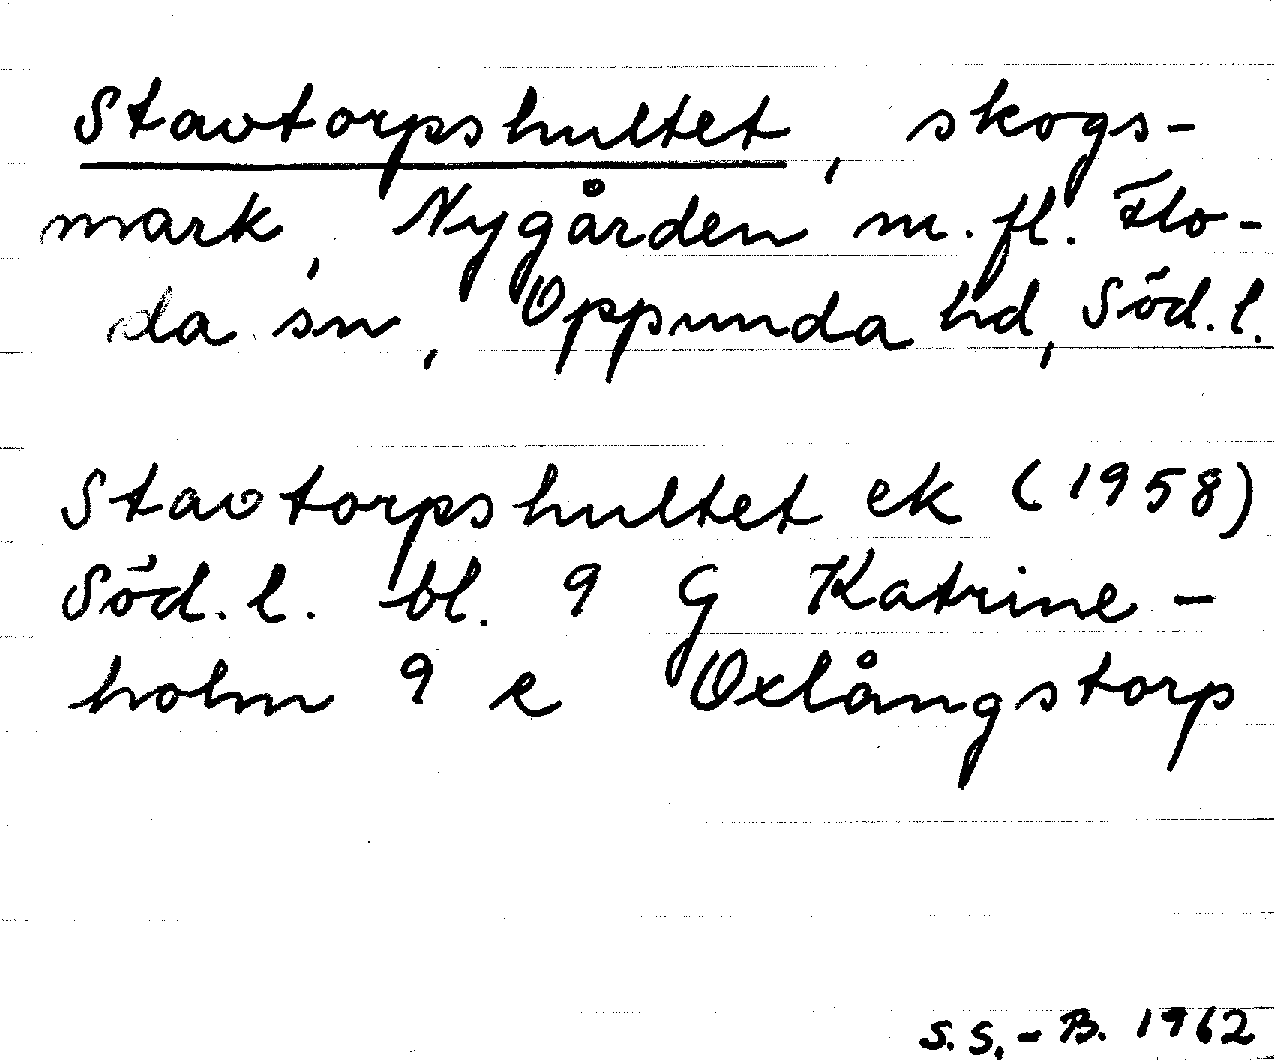 Stavtorpshultet, skogs-
mark, Nygården m. fl. Flo-
da sn, Oppunda hd, Söd. l.
Stavtorpshultet ek (1958)
Söd. l. bl. 9 G Katrine-
holm 9 e Oxlångstorp
S. S.-B. 1962